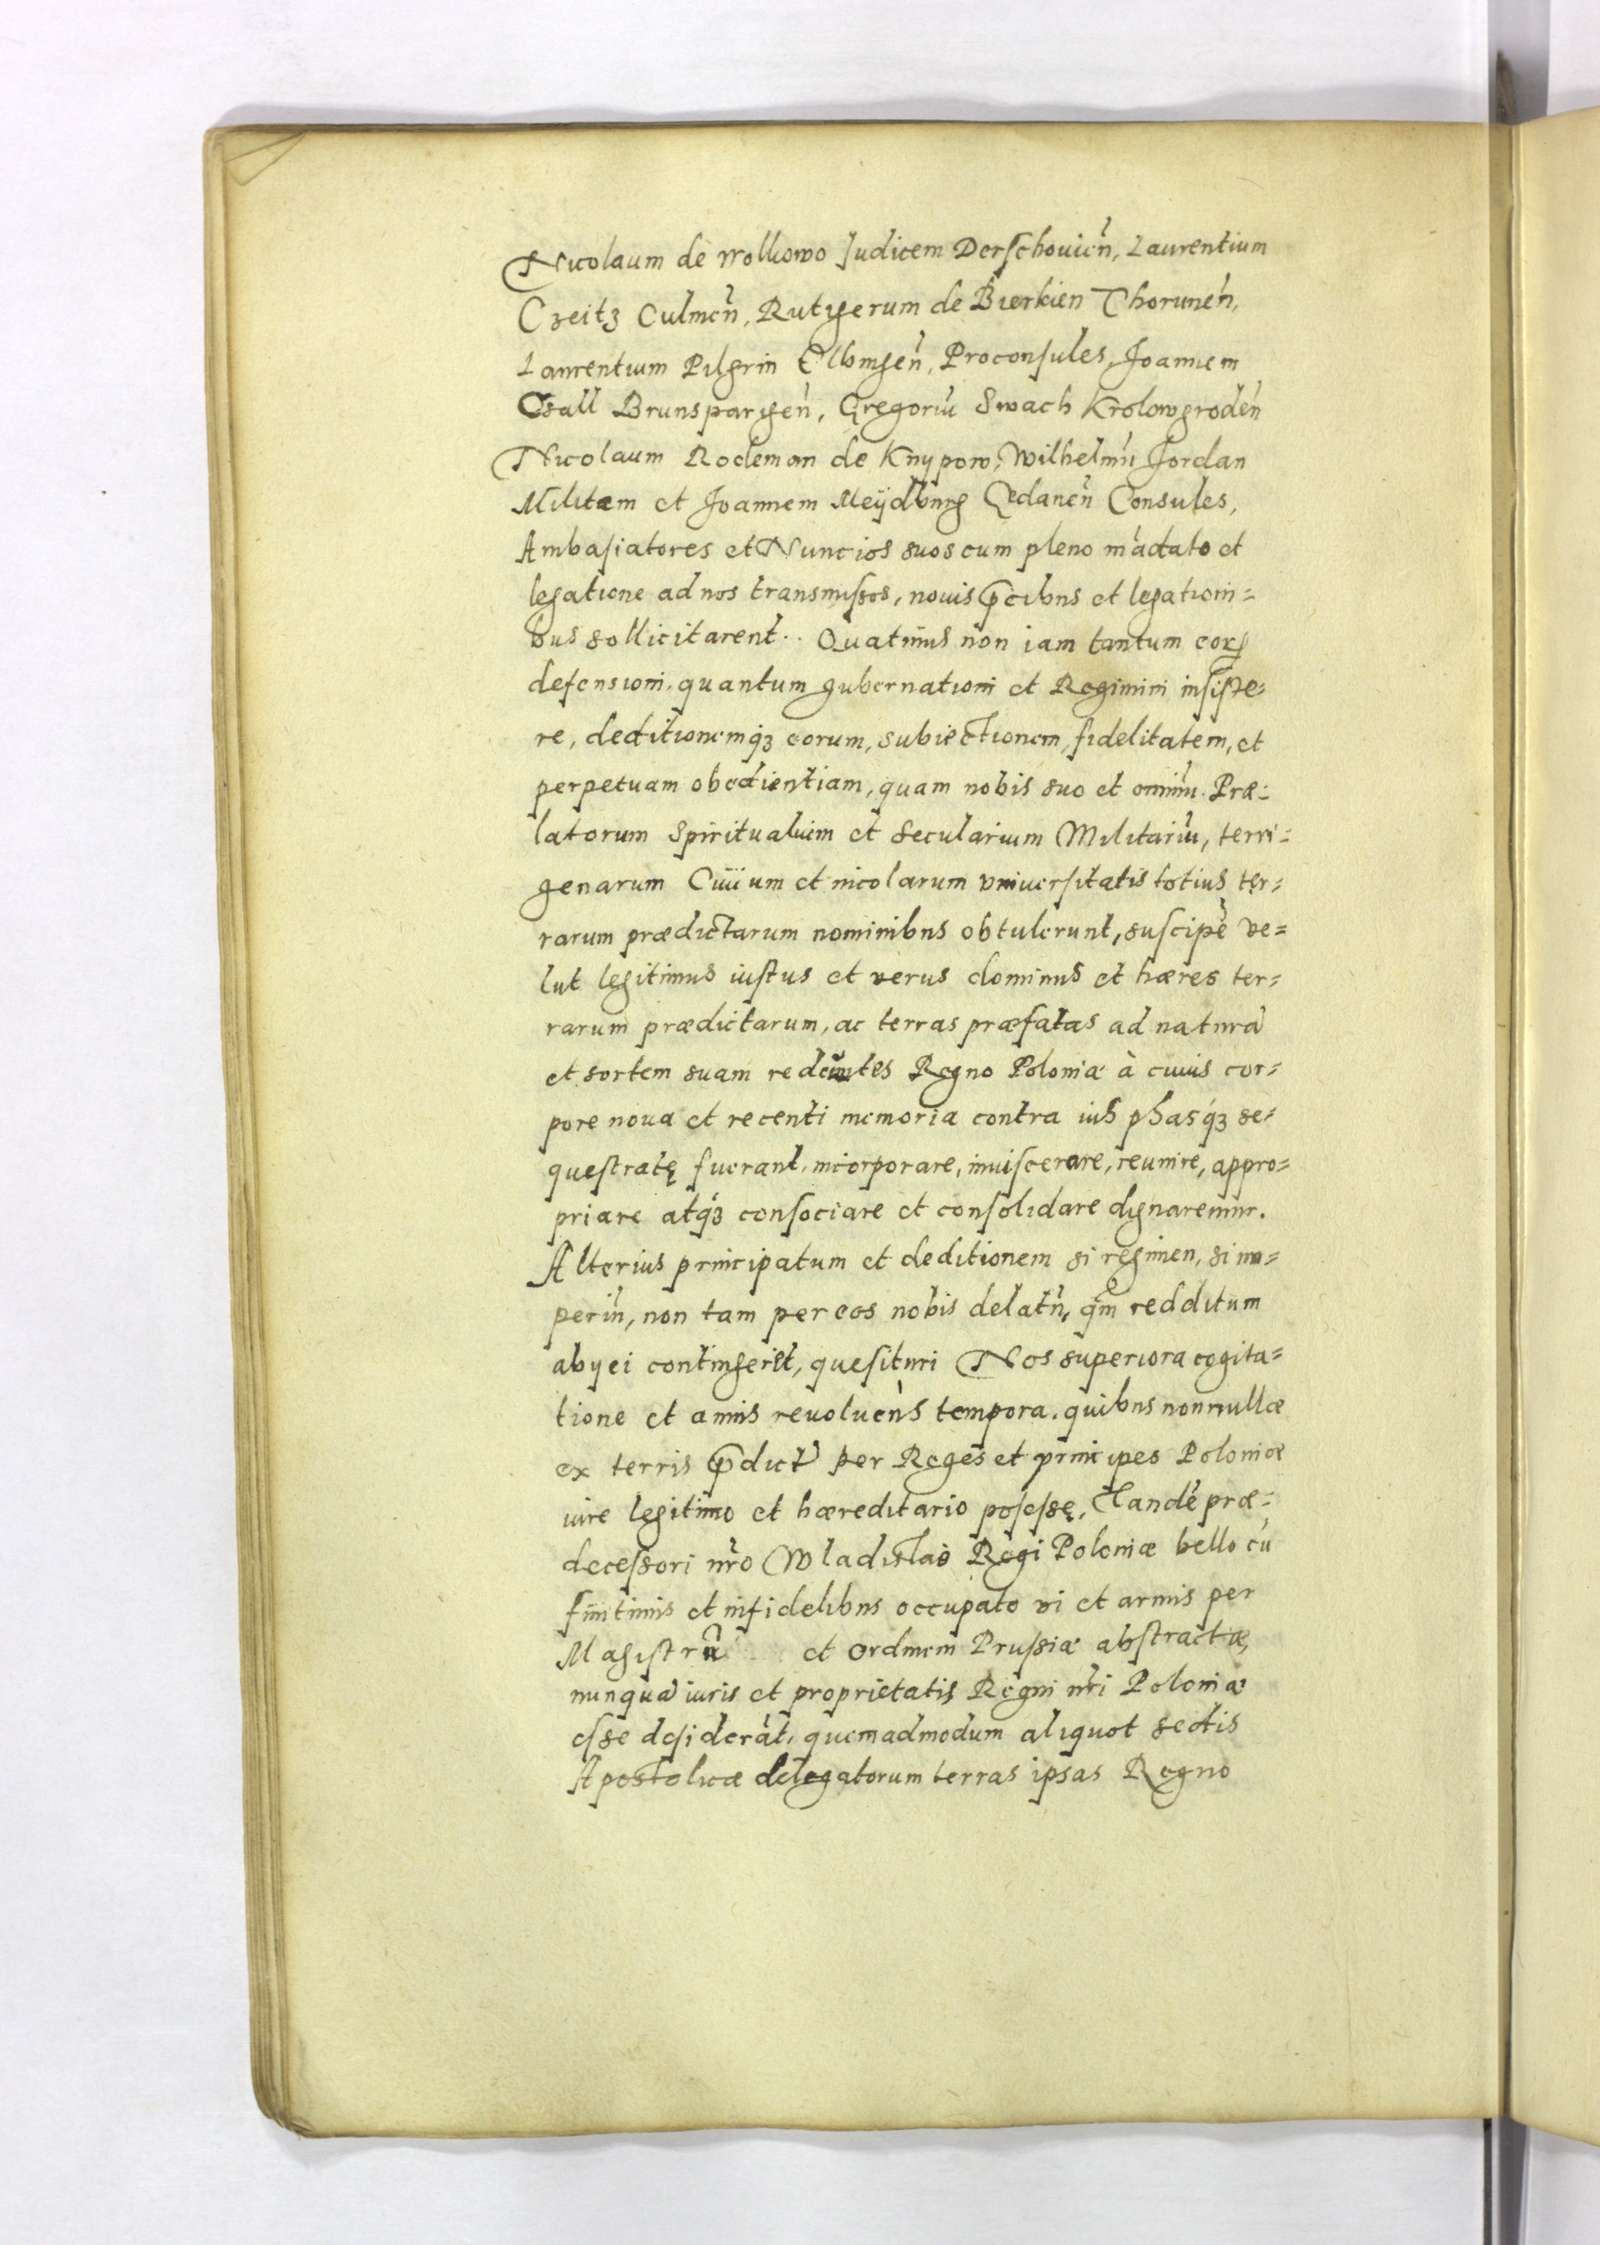 Nicolaum de Wolkowo Judicem Derschouien̄, Laurentium
Czeitz Culmen̄, Rutgerum de Bierkien Thorunen̄,
Laurentium Pilgrin Elbingen̄, Proconsules, Joannem
Csall Brunspargen̄, Gregoriū Swach Krolowgroden̄
Nicolaum Rodeman de Knypow, Wilhelmū Jordan
Militem et Joannem Meijdburg Gedanen̄ Consules,
Ambasiatores et Nuncios suos cum pleno mādato et
legatione ad nos transmissos, nouis p̄cibus et legationi=
bus sollicitarent. Quatinus non iam tantum eorꝝ
defensioni, quantum gubernationi et Regimini insiste=
re, deditionemqꝫ eorum, subiectionem, fidelitatem, et
perpetuam obedientiam, quam nobis suo et omniū Præ=
latorum Spiritualium et Secularium Militariū, terri=
genarum Ciuium et incolarum vniuersitatis totius ter=
rarum prædictarum nominibus obtulerunt, suscipē ve=
lut legitimus iustus et verus dominus et hæres ter=
rarum prædictarum, ac terras præfatas ad naturā
et sortem suam redeūtes Regno Poloniæ à cuius cor=
pore noua et recenti memoria contra ius phasqꝫ se=
questratę fuerant, incorporare, inuiscerare, reunire, appro=
priare atqꝫ consociare et consolidare dignaremur.
Alterius principatum et deditionem si regimen, si im=
periū, non tam per eos nobis delatū, qm̄ redditum
abyci contingerit, quesituri Nos superiora cogita=
tione et annis reuoluen̄s tempora, quibus nonnullæ
ex terris p̄dict̄ per Reges et principes Poloniæ
iure legitimo et hæreditario possessę, Tandē præ=
decessori nr̄o Wladislao Regi Poloniæ bello cū
finitimis et infidelibus occupato vi et armis per
Magistrū et Ordinem Prussiæ abstractæ,
nunquā iuris et proprietatis Regni nr̄i Poloniæ
esse desiderāt, quemadmodum aliquot sectis
Apostolicæ delegatorum terras ipsas Regno